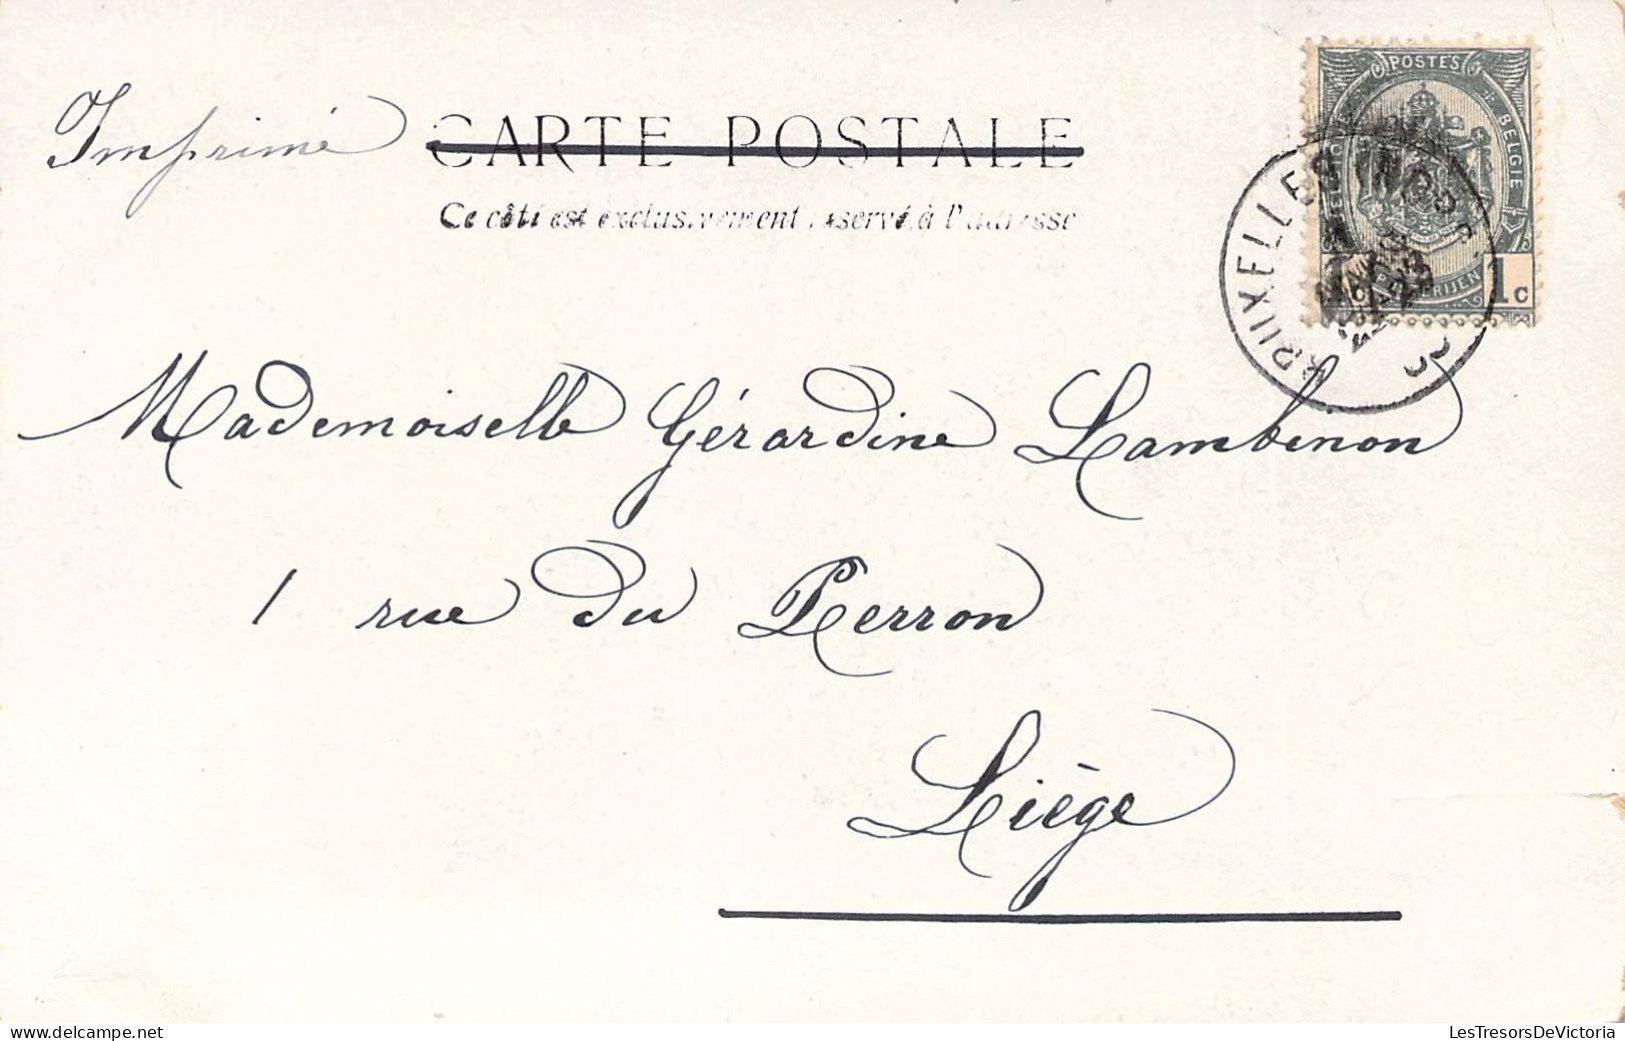 Imprimé
CARTE POSTALE
Ce côté est exclusivement réservé à l'adresse
POSTES
BELGIQUE
BELGIE
POSTERIJEN
1c
BRUXELLES
Mademoiselle Gérardine Lambinon
1 rue du Perron
Liège
LesTresorsDeVictoria